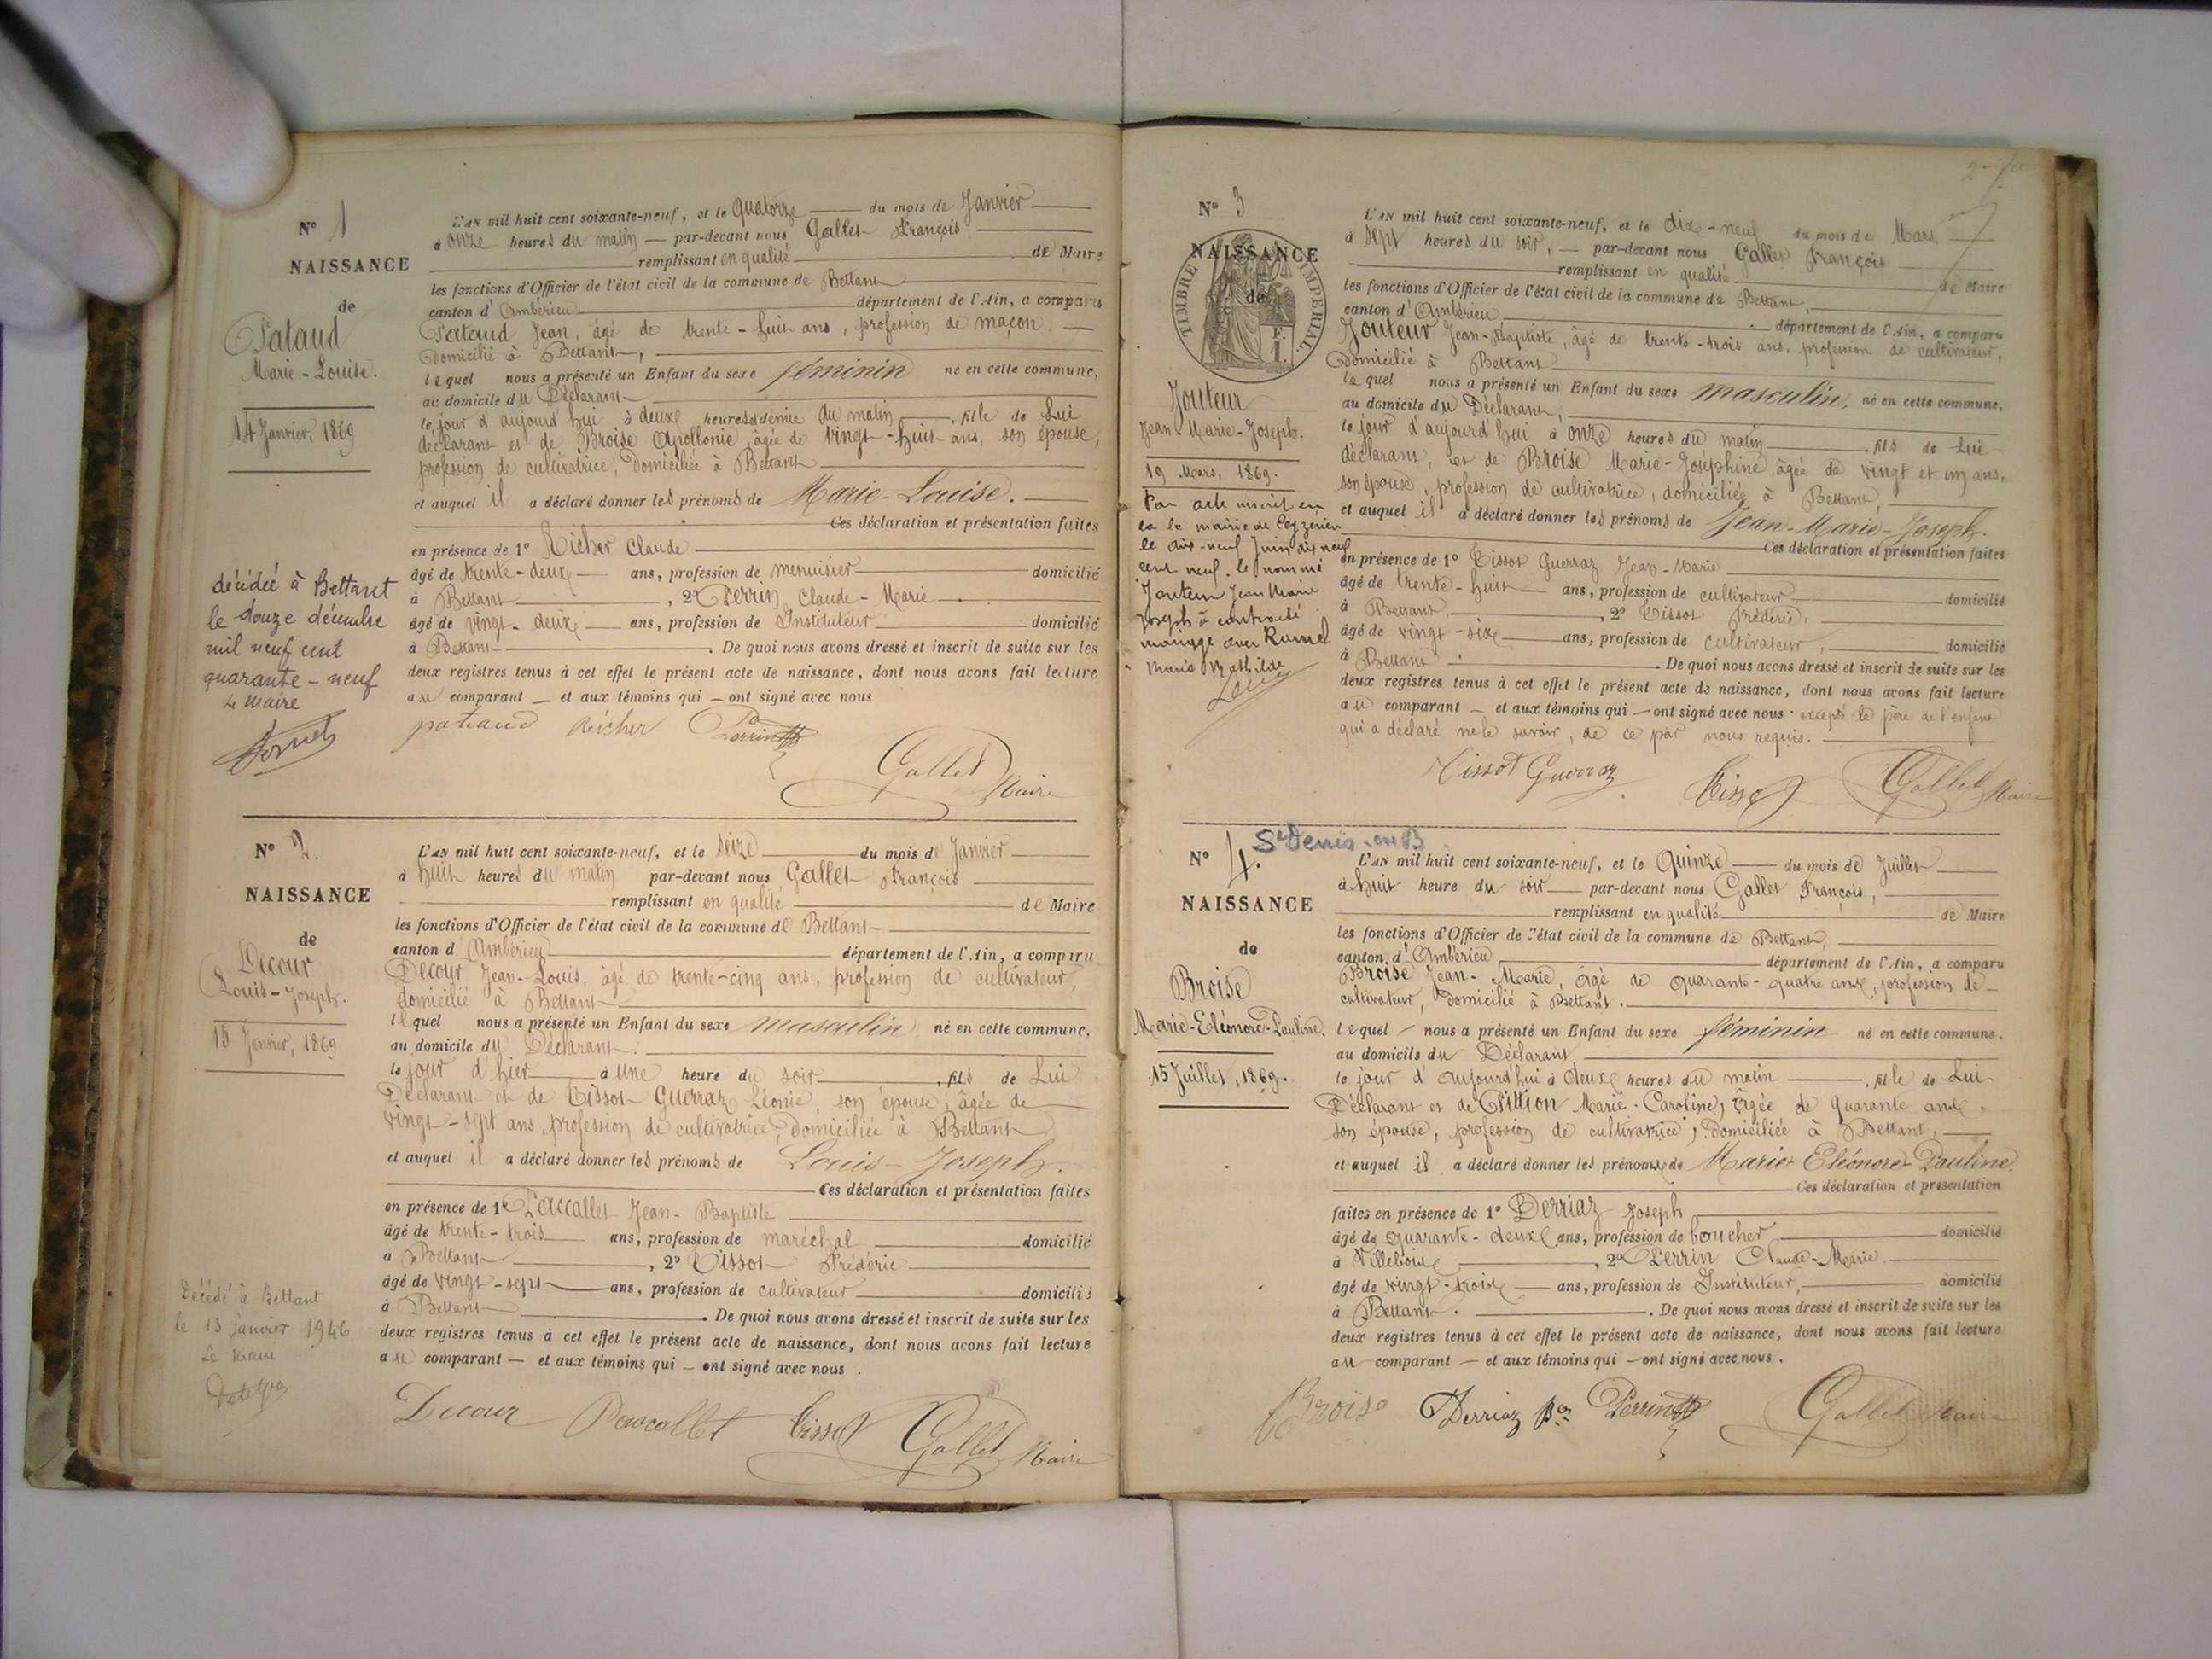 N° 1
NAISSANCE
de
Pataud
Marie-Louise.
14 Janvier, 1869
décédée à Bettant
le douze décembre
mil neuf cent
quarante-neuf
Le Maire
L'AN mil huit cent soixante-neuf, et le quatorze du mois de Janvier
à onze heures du matin par-devant nous Gallet François
remplissant en qualité de Maire
les fonctions d'Officier de l'état civil de la commune de Bettant
canton d'Ambérieu département de l'Ain, a comparu
Pataud Jean, âgé de trente-huit ans, profession de maçon
domicilié à Bettant,
lequel nous a présenté un Enfant du sexe féminin né en cette commune,
au domicile du Déclarant
le jour d'aujourd'hui à deux heures et demie du matin, fille de Lui
déclarant et de Broise Apollonie, âgée de vingt-huit ans, son épouse,
profession de cultivatrice, domiciliée à Bettant
et auquel il a déclaré donner les prénoms de Marie-Louise.
Ces déclaration et présentation faites
en présence de 1° Richer Claude
âgé de trente-deux ans, profession de menuisier domicilié
à Bettant, 2° Perrin Claude-Marie
âgé de vingt-deux ans, profession de Instituteur domicilié
à Bettant. De quoi nous avons dressé et inscrit de suite sur les
deux registres tenus à cet effet le présent acte de naissance, dont nous avons fait lecture
au comparant et aux témoins qui ont signé avec nous
pataud Richer Perrin
Gallet Maire
N° 2.
NAISSANCE
de
Decour
Louis-Joseph.
15 Janvier, 1869
Décédé à Bettant
le 13 janvier 1946
Le Maire
L'AN mil huit cent soixante-neuf, et le seize du mois de Janvier
à huit heures du matin par-devant nous Gallet François
remplissant en qualité de Maire
les fonctions d'Officier de l'état civil de la commune de Bettant
canton d'Ambérieu département de l'Ain, a comparu
Decour Jean-Louis, âgé de trente-cinq ans, profession de cultivateur,
domicilié à Bettant
lequel nous a présenté un Enfant du sexe masculin né en cette commune,
au domicile du Déclarant.
le jour d'hier à une heure du soir, fils de Lui
Déclarant et de Tissot Guerraz Léonie, son épouse, âgée de
vingt-sept ans, profession de cultivatrice, domiciliée à Bettant
et auquel il a déclaré donner les prénoms de Louis-Joseph.
Ces déclaration et présentation faites
en présence de 1° Paccallet Jean-Baptiste
âgé de trente-trois ans, profession de maréchal domicilié
à Bettant, 2° Tissot Frédéric
âgé de vingt-sept ans, profession de cultivateur domicilié
à Bettant. De quoi nous avons dressé et inscrit de suite sur les
deux registres tenus à cet effet le présent acte de naissance, dont nous avons fait lecture
au comparant et aux témoins qui ont signé avec nous.
Decour Paccallet Tissot Gallet Maire
N° 3
NAISSANCE
de
TIMBRE IMPERIAL
F.
1.
Jouteur
Jean-Marie-Joseph.
19 Mars, 1869.
Par acte inscrit en
la mairie de Leyzérieu
le dix-neuf Juin dix neuf
cent neuf. le nommé
Jouteur Jean Marie
Joseph à contracté
mariage avec
Marie Mathilde
L'AN mil huit cent soixante-neuf, et le dix-neuf du mois de Mars,
à sept heures du soir, par-devant nous Gallet François
remplissant en qualité de Maire
les fonctions d'Officier de l'état civil de la commune de Bettant,
canton d'Ambérieu département de l'Ain, a comparu
Jouteur Jean-Baptiste, âgé de trente-trois ans, profession de cultivateur,
Domicilié à Bettant
lequel nous a présenté un Enfant du sexe masculin, né en cette commune,
au domicile du Déclarant,
le jour d'aujourd'hui à onze heures du matin, fils de Lui
déclarant, et de Broise Marie-Joséphine âgée de vingt et un ans,
son épouse, profession de cultivatrice, domiciliée à Bettant,
et auquel il a déclaré donner les prénoms de Jean-Marie-Joseph.
Ces déclaration et présentation faites
en présence de 1° Tissot Guerraz Jean-Marie
âgé de trente-huit ans, profession de cultivateur domicilié
à Bettant, 2° Tissot Frédéric,
âgé de vingt-six ans, profession de cultivateur, domicilié
à Bettant. De quoi nous avons dressé et inscrit de suite sur les
deux registres tenus à cet effet le présent acte de naissance, dont nous avons fait lecture
au comparant et aux témoins qui ont signé avec nous excepté le père de l'enfant
qui a déclaré ne le savoir, de ce par nous requis.
Tissot Guerraz Tissot Gallet Maire
N° 4.
St Denis-en-B
NAISSANCE
de
Broise
Marie-Eléonore-Pauline.
15 Juillet, 1869.
L'AN mil huit cent soixante-neuf, et le Quinze du mois de Juillet
à huit heure du soir par-devant nous Gallet François,
remplissant en qualité de Maire
les fonctions d'Officier de l'état civil de la commune de Bettant,
canton d'Ambérieu département de l'Ain, a comparu
Broise Jean-Marie, âgé de quarante-quatre ans, profession de
cultivateur, domicilié à Bettant.
lequel nous a présenté un Enfant du sexe féminin né en cette commune.
au domicile du Déclarant
le jour d'aujourd'hui à deux heures du matin, fille de Lui
Déclarant et de Pittion Marie-Caroline, âgée de quarante ans,
son épouse, profession de cultivatrice, domiciliée à Bettant,
et auquel il a déclaré donner les prénoms de Marie Eléonore-Pauline.
Ces déclaration et présentation
faites en présence de 1° Derriaz Joseph
âgé de quarante-deux ans, profession de boucher domicilié
à Villebois, 2° Perrin Claude-Marie
âgé de vingt-trois ans, profession de Instituteur, domicilié
à Bettant. De quoi nous avons dressé et inscrit de suite sur les
deux registres tenus à cet effet le présent acte de naissance, dont nous avons fait lecture
au comparant et aux témoins qui ont signé avec nous.
Broise Derriaz Perrin Gallet Maire